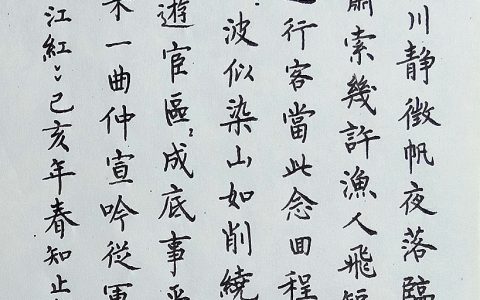 川靜徵帆夜落臨
索幾許漁人飛短
行客當此念囬程
波似染山如削繞
遊宦區:成底事平
一曲仲宣吟從軍
江紅:己亥年春知止